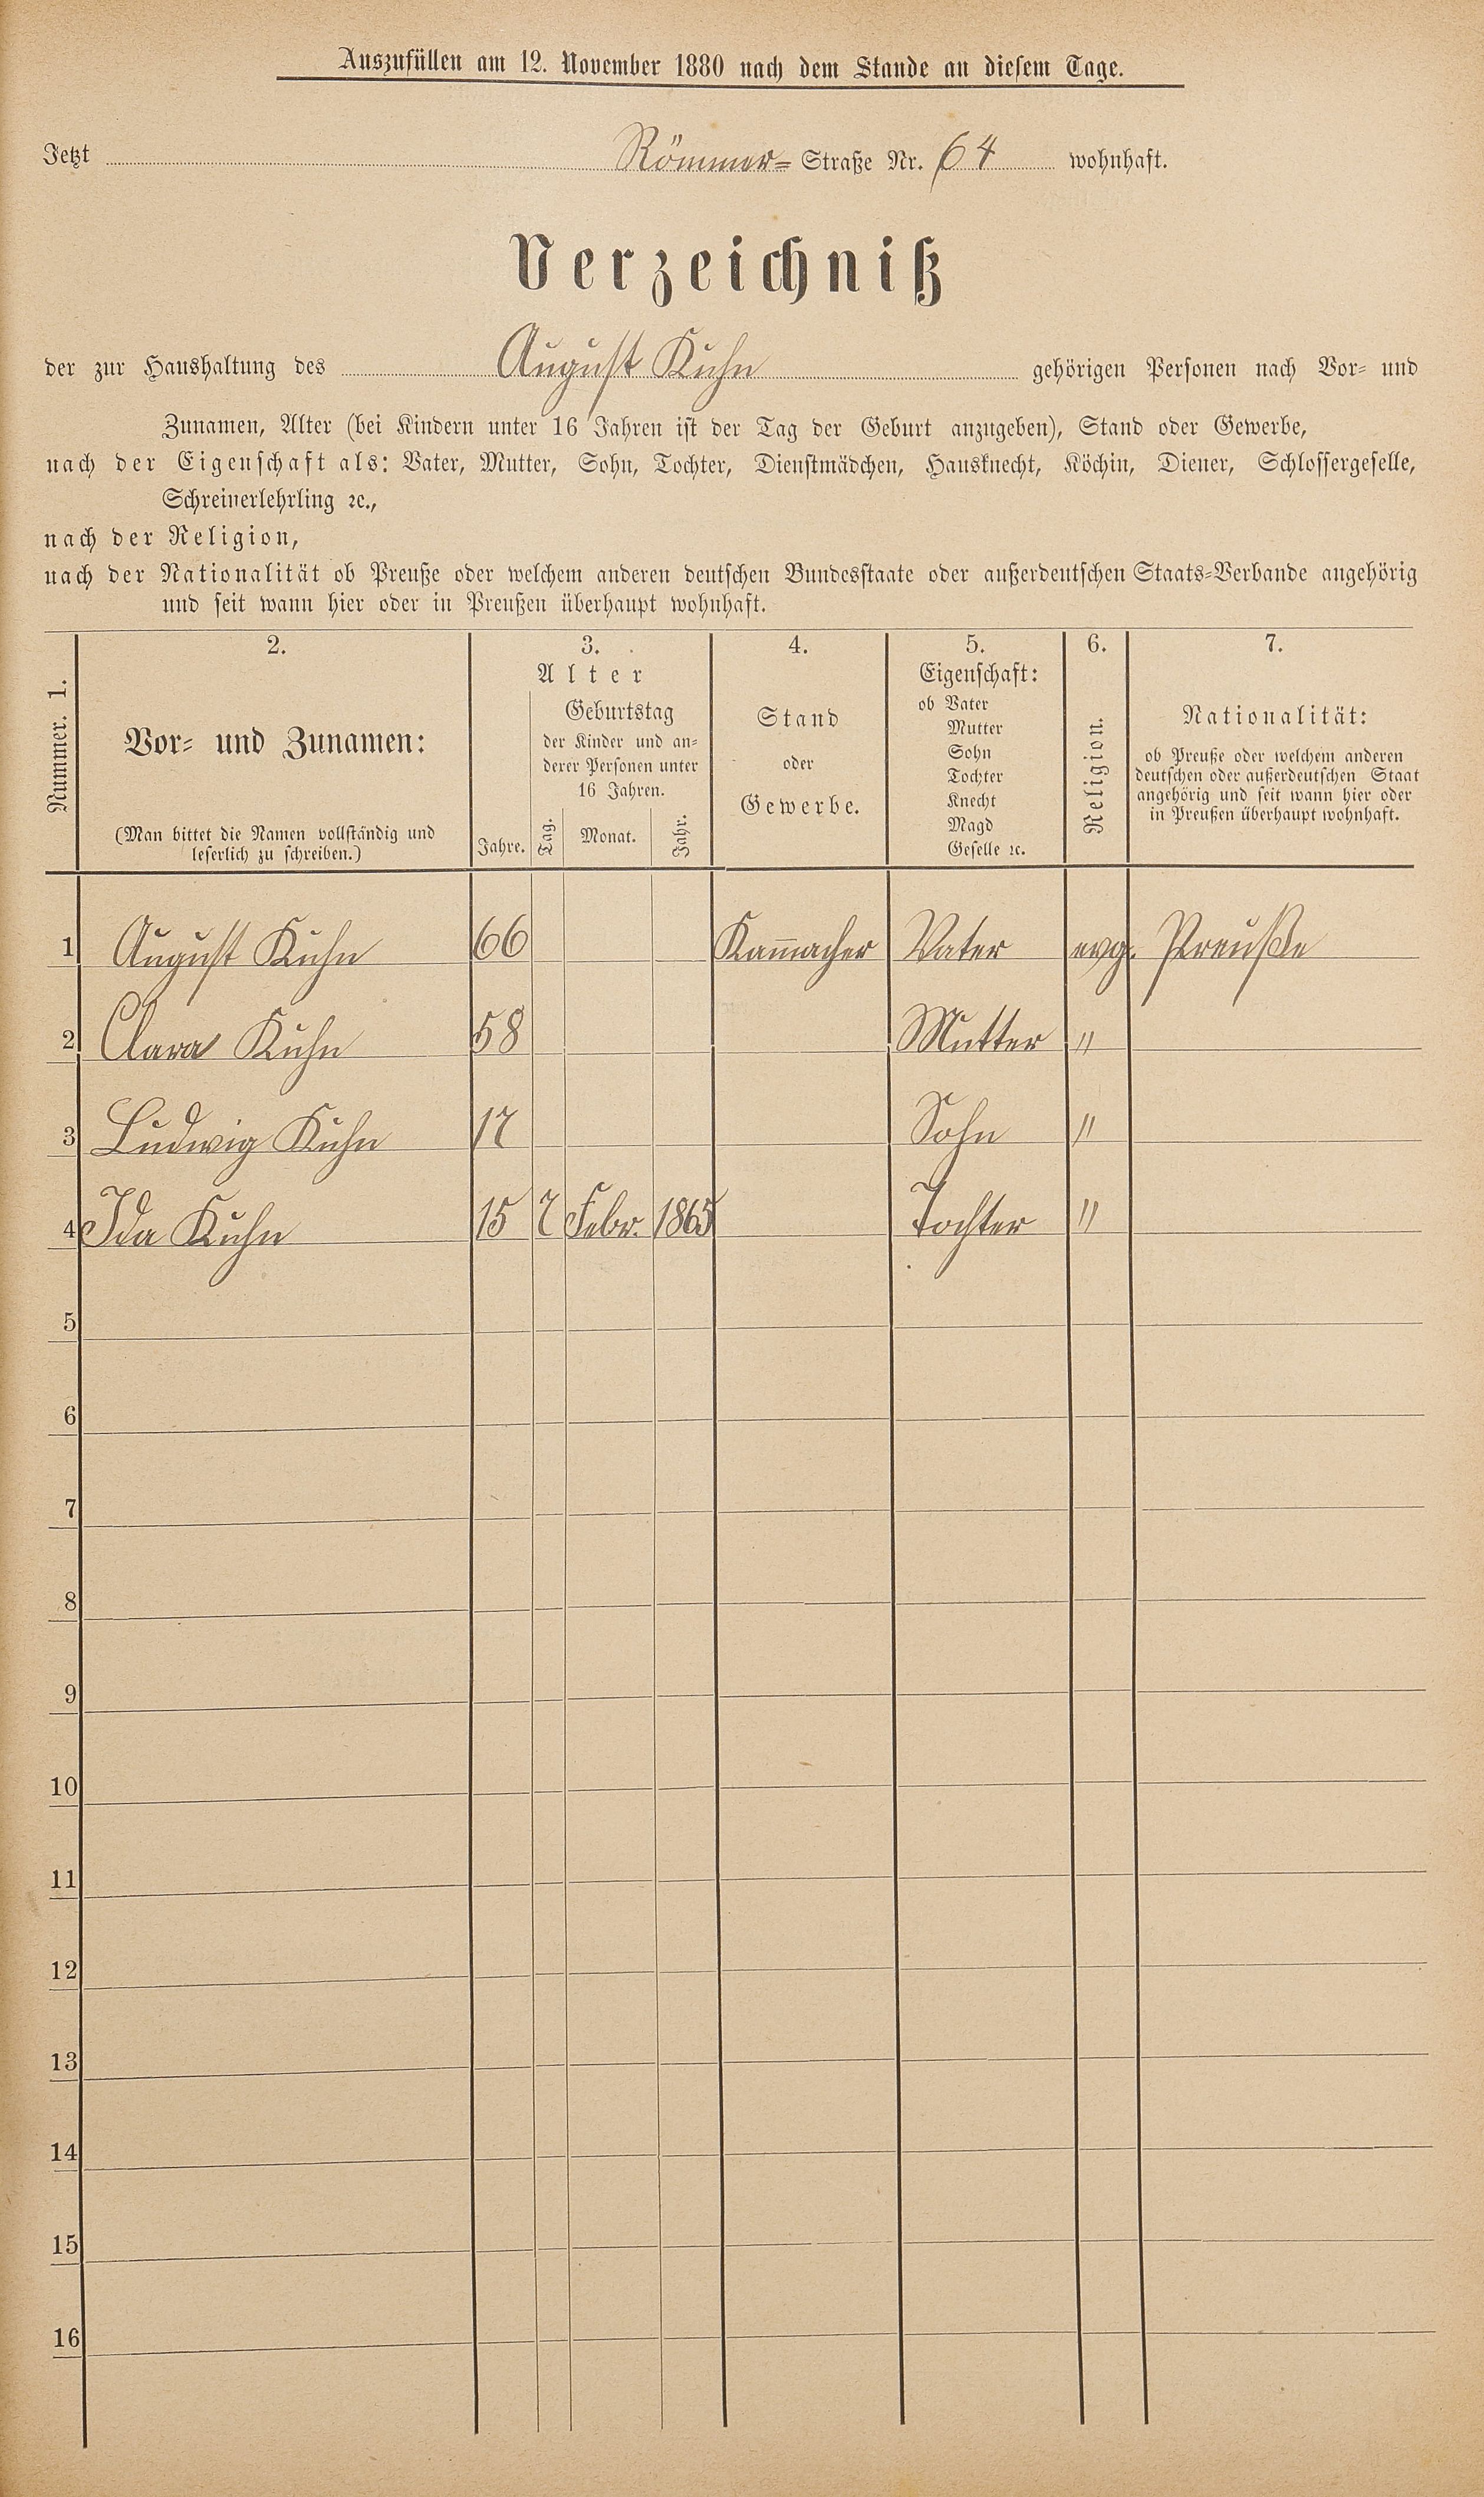 Auszufüllen am 12. November 1880 nach dem Stande an diesem Tage.
Jetzt Römmer= Straße Nr. 64 wohnhaft.
Verzeichniß
der zur Haushaltung des August Kuhn gehörigen Personen nach Vor= und
Zunamen, Alter (bei Kindern unter 16 Jahren ist der Tag der Geburt anzugeben), Stand oder Gewerbe,
nach der Eigenschaft als: Vater, Mutter, Sohn, Tochter, Dienstmädchen, Hausknecht, Köchin, Diener, Schlossergeselle,
Schreinerlehrling ꝛc.,
nach der Religion,
nach der Nationalität ob Preuße oder welchem anderen deutschen Bundesstaate oder außerdeutschen Staats=Verbande angehörig
und seit wann hier oder in Preußen überhaupt wohnhaft.
Nummer. 1.
2.
Vor= und Zunamen:
(Man bittet die Namen vollständig und
leserlich zu schreiben.)
3.
Alter
Jahre.
Geburtstag
der Kinder und an=
derer Personen unter
16 Jahren.
Tag. Monat. Jahr.
4.
Stand
oder
Gewerbe.
5.
Eigenschaft:
ob Vater
Mutter
Sohn
Tochter
Knecht
Magd
Geselle ꝛc.
6.
Religion.
7.
Nationalität:
ob Preuße oder welchem anderen
deutschen oder außerdeutschen Staat
angehörig und seit wann hier oder
in Preußen überhaupt wohnhaft.
1 August Kuhn 66 Kam̄acher Vater evg. Preuße
2 Clara Kuhn 58 Mutter "
3 Ludwig Kuhn 17 Sohn "
4 Ida Kuhn 15 7 Febr. 1865 Tochter "
5
6
7
8
9
10
11
12
13
14
15
16